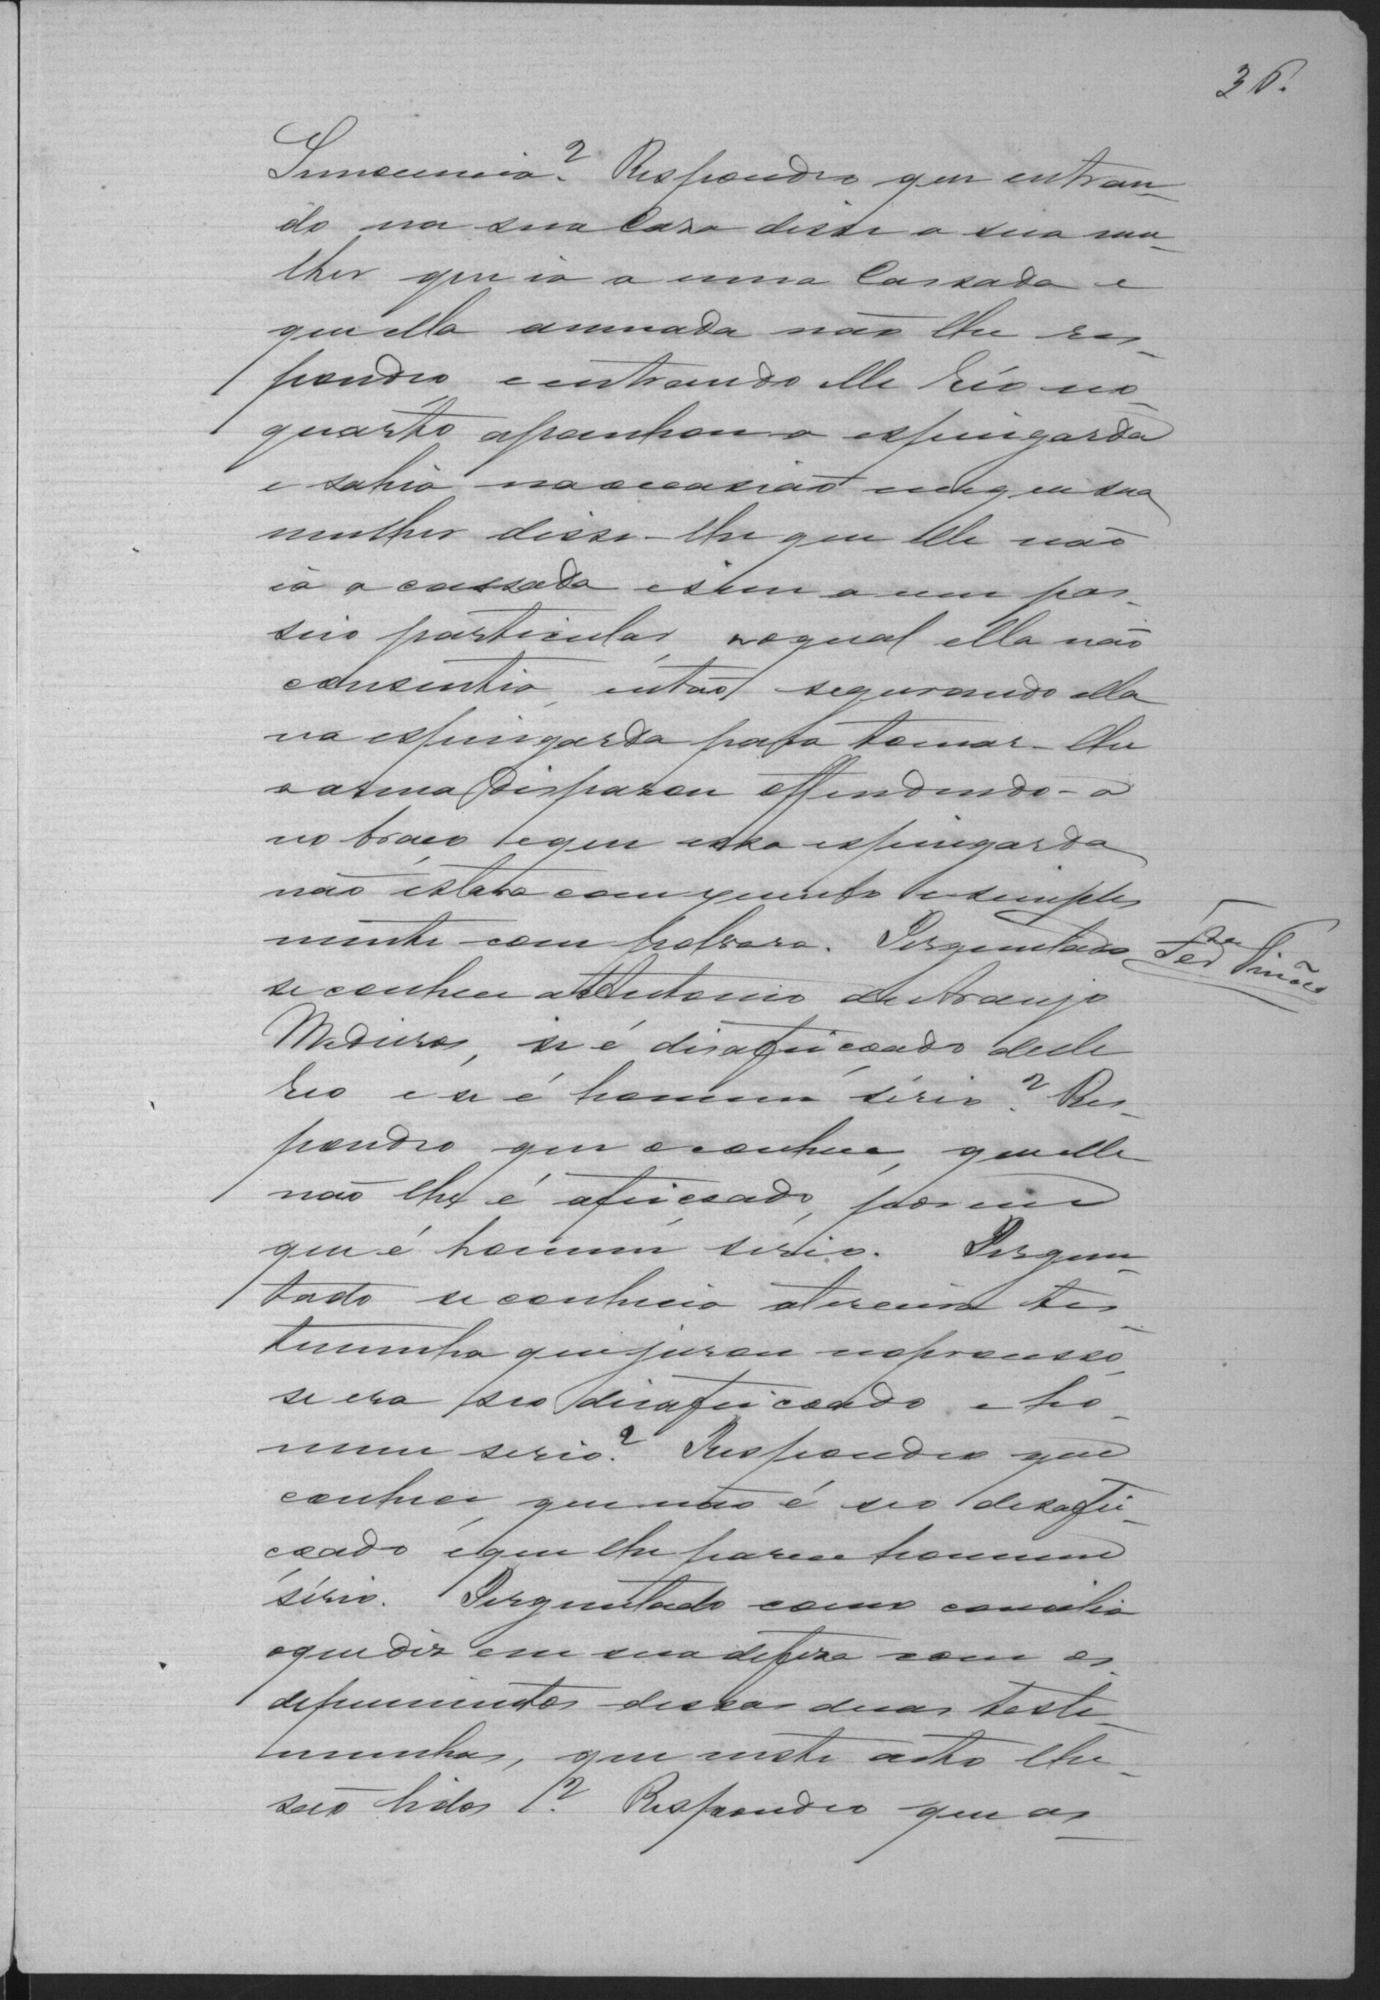 36.
Innocencia? Respondeo que entran-
do na sua Casa disse a sua mu-
lher que ia a uma Cassada e
que ella amuada não lhe res-
pondeo, e entrando elle Réo no
quarto apanhou a espingarda
e sahio na occasião em que sua
mulher disse-lhe que elle não
ia a cassada e sim a um pas-
seio particular, no qual ella não
consentia, então segurando ella
na espingarda para tomar-lhe
a arma disparou offendendo-a
no braço e que essa espingarda
não estava com chumbo e simples
mente com polvora. Perguntado
se conhece a Antonio de Araujo
Medeiros, se é desafeiçoado delle
Réo e se é homem sério? Res-
pondeo que o conhece, que elle
não lhe é afeiçoado, porem
que é homem sério. Pergun-
tado se conhecia a terceira tes-
temunha que jurou no processo,
se era seo desafeiçoado e ho-
mem serio? Respondeo que
conhece, que não é seo desafei-
çoado e que lhe parece homem
sério. Perguntado como concilia
o que diz em sua defeza com os
depoimentos dessas duas teste-
munhas, que neste acto lhe
são lidos? Respondeo que as